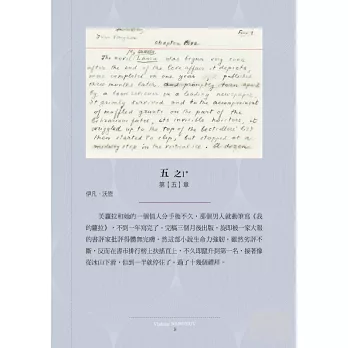 Ivan Vaughan
Five 1
Chapter Five
My
The novel Laura was begun very soon
after the end of the love affair it depicts,
was completed in one year, published
three months later, and promptly torn apart
by a book reviewer in a leading newspaper.
It grimly survived and to the accompaniment
of muffled grunts on the part of the
librarious fates, its invisible hoisters, it
wriggled up to the top of the best-sellers' list
then started to slip, but stopped at a
midway step in the vertical ice. A dozen
五 之1*
第〔五〕章
伊凡．沃恩
美蘿拉和她的一個情人分手後不久，那個男人就動筆寫《我
的蘿拉》，不到一年寫完了，完稿三個月後出版，旋即被一家大報
的書評家批評得體無完膚，然這部小說生命力強韌，雖然劣評不
斷，反而在書市排行榜上扶搖直上，不久即躍升到第一名，接著像
從冰山下滑，但到一半就停住了。過了十幾個禮拜，